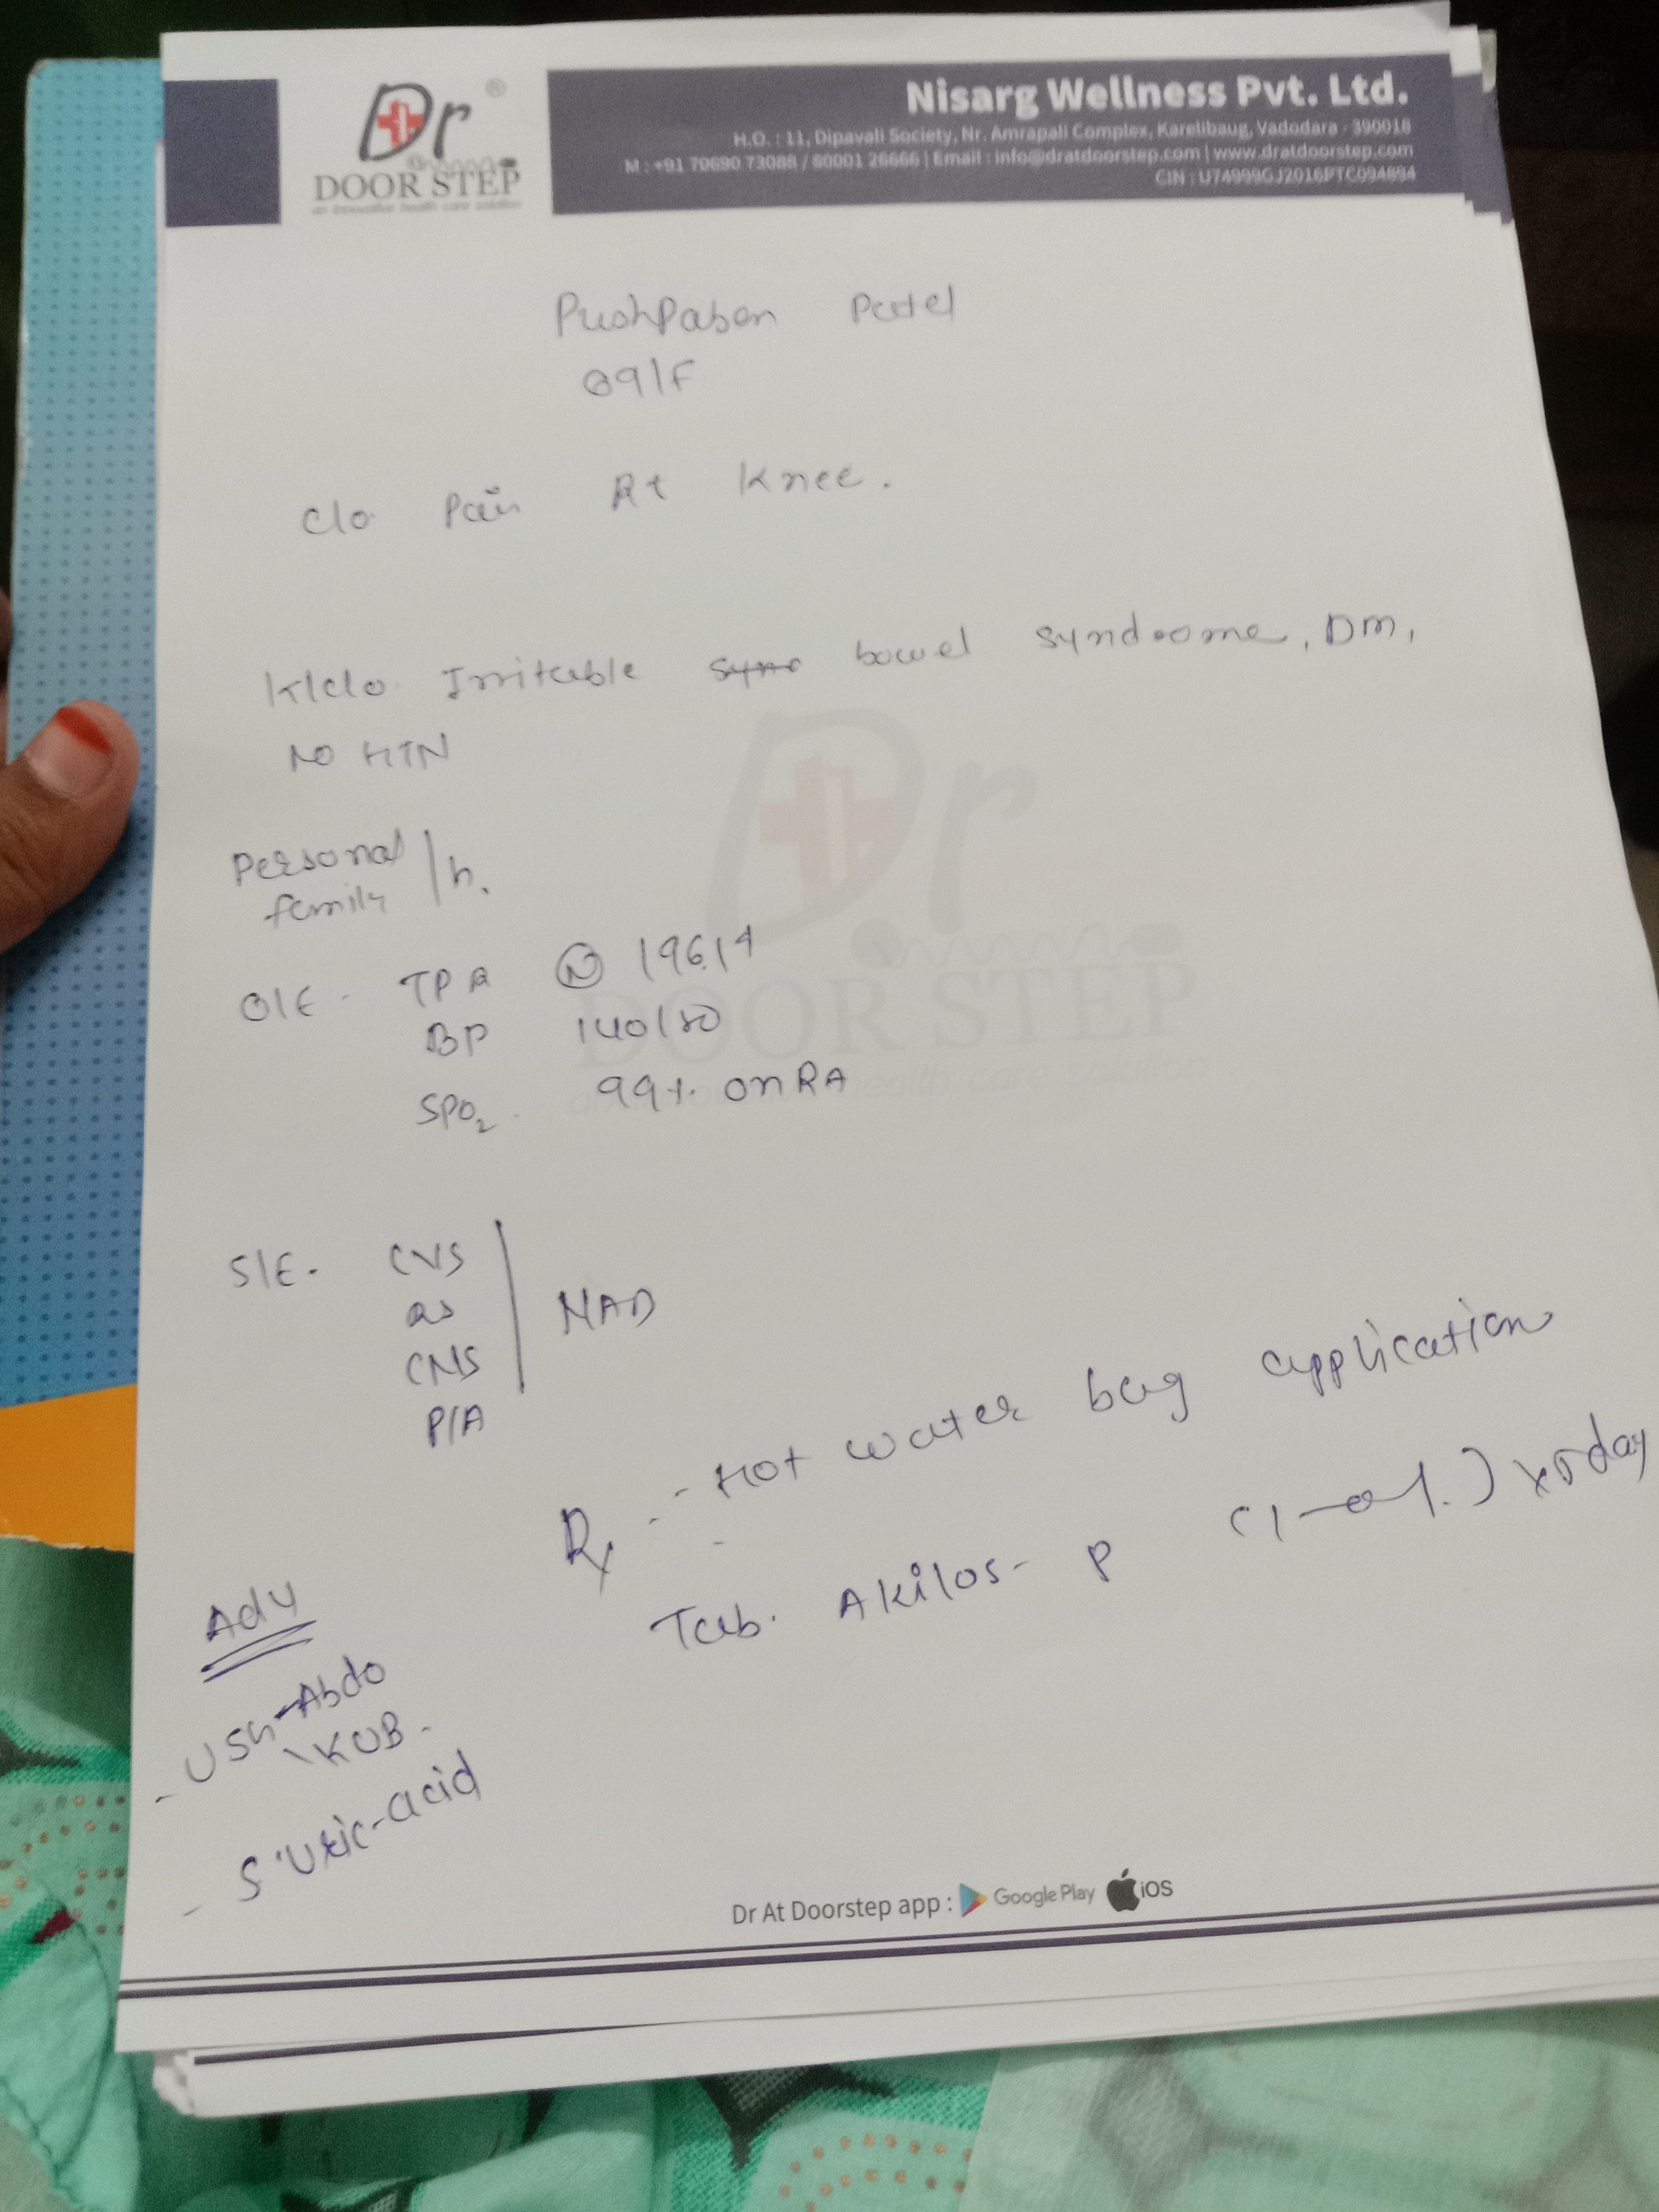 Dr
DOOR STEP
an innovative health care solution
Nisarg Wellness Pvt. Ltd.
H.O. : 11, Dipavali Society, Nr. Amrapali Complex, Karelibaug, Vadodara - 390018
M : +91 70690 73088 / 80001 26666 | Email : info@dratdoorstep.com | www.dratdoorstep.com
CIN : U74999GJ2016PTC094894
Pushpaben Patel
69/F
C/o Pain Rt Knee.
K/c/o Irritable bowel syndrome, DM,
No HTN
Personal
family /h.
O/E - TPR (N) 196/4
BP 140/80
SPO2 - 99% on RA
S/E - CVS
RS
CNS
P/A
NAD
Rx - Hot water bag application
Tab. Akilos - P (1-0-1) x 5 day
Adv
- USG - Abdo
\KUB -
- S. Uric-acid
Dr At Doorstep app : Google Play iOS